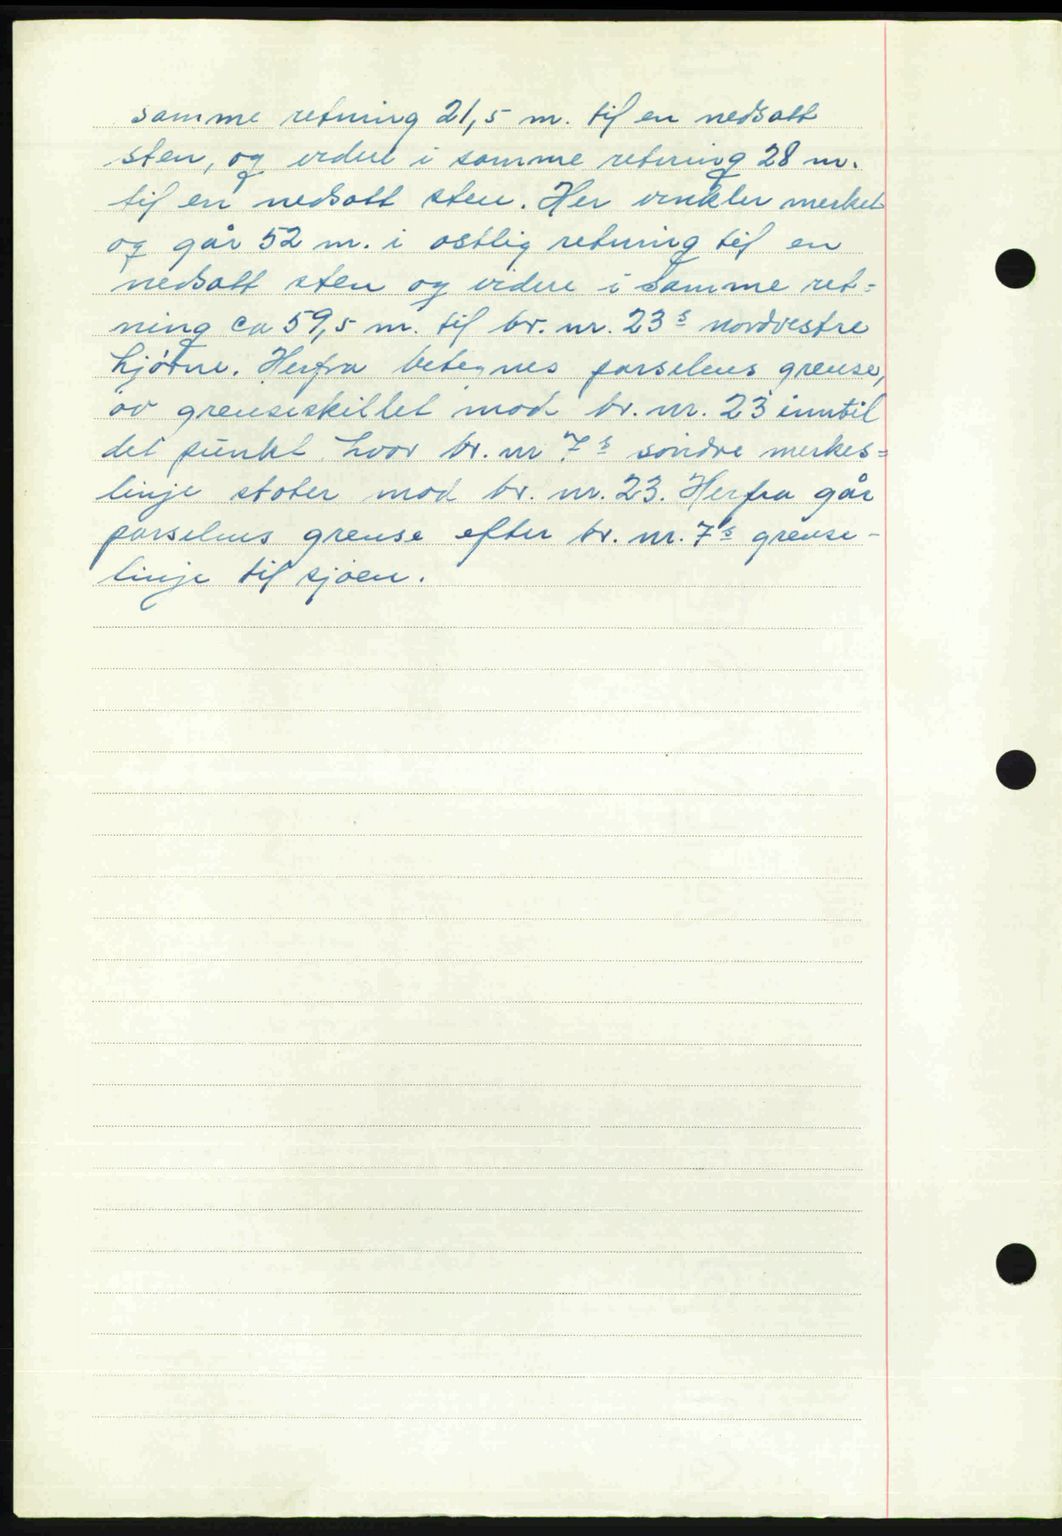 samme retning 21,5 m. til en nedsatt
sten, og videre i samme retning 28 m.
til en nedsatt sten. Her vinkler merket
og går 52 m. i østlig retning til en
nedsatt sten og videre i samme ret=
ning ca 59,5 m. til br. nr. 23s nordvestre
hjørne. Herfra betegnes parselens grense,
av grenseskillet mod br. nr. 23 inntil
det punkt hvor br. nr 7s søndre merkes=
linje støter mod br. nr. 23. Herfra går
parselens grense efter br. nr. 7s grense-
linje til sjøen.